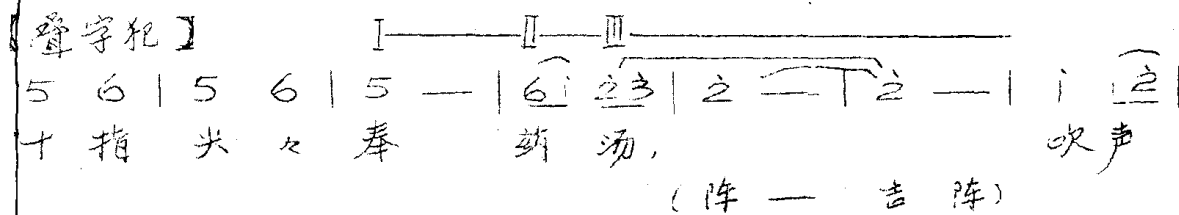 【叠字犯】 Ⅰ———Ⅱ——Ⅲ—————————
5 6 | 5 6 | 5 — | 6i 2̇3̇ | 2̇ — | 2̇ — | i 2̇ |
十 指 尖 々 奉 药 汤， 吹 声
(阵 — 吉 阵)